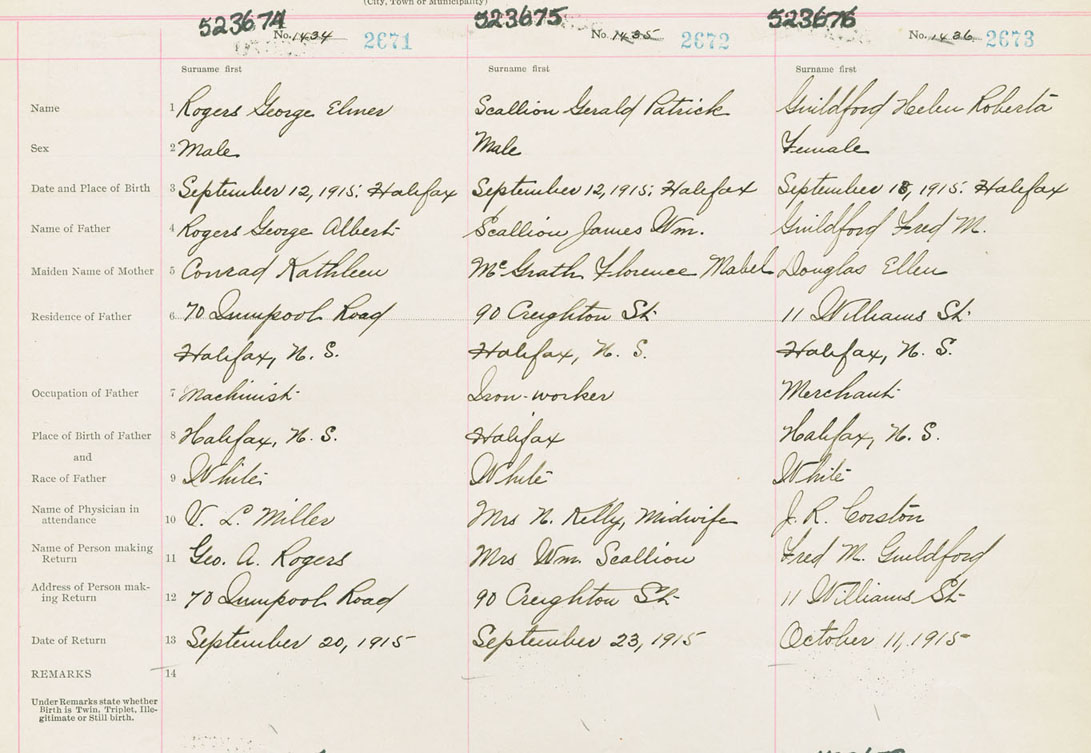 (City, Town or Municipality)
523674 523675 523676
No. 1434 2671 No. 1435 2672 No. 1436 2673
Surname first Surname first Surname first
Name 1 Rogers George Elmer Scallion Gerald Patrick Guildford Helen Roberta
Sex 2 Male Male Female
Date and Place of Birth 3 September 12, 1915: Halifax September 12, 1915: Halifax September 18, 1915: Halifax
Name of Father 4 Rogers George Albert Scallion James Wm. Guildford Fred M.
Maiden Name of Mother 5 Conrad Kathleen McGrath Florence Mabel Douglas Ellen
Residence of Father 6 70 Quinpool Road 90 Creighton St. 11 Williams St.
Halifax, N. S. Halifax, N. S. Halifax, N. S.
Occupation of Father 7 Machinist Iron-worker Merchant
Place of Birth of Father 8 Halifax, N. S. Halifax Halifax, N. S.
and
Race of Father 9 White White White
Name of Physician in
attendance 10 V. L. Miller Mrs N. Kelly, Midwife J. R. Corston
Name of Person making
Return 11 Geo. A. Rogers Mrs Wm. Scallion Fred M. Guildford
Address of Person mak-
ing Return 12 70 Quinpool Road 90 Creighton St. 11 Williams St.
Date of Return 13 September 20, 1915 September 23, 1915 October 11, 1915
REMARKS 14
Under Remarks state whether
Birth is Twin, Triplet, Ille-
gitimate or Still birth.